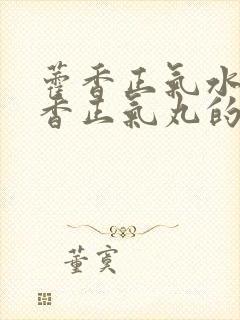 藿香正氣水
香正氣丸的
董寞